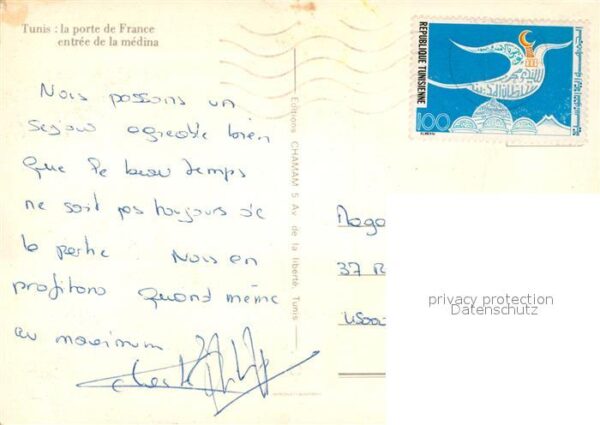 Tunis : la porte de France
entrée de la médina
Nous passons un
sejour agreable bien
que le beau temps
ne soit pas toujours de
la partie Nous en
profitons quand même
au maximum
Editions CHAMAM 5 Av. de la liberté, Tunis
REPUBLIQUE TUNISIENNE
100
37 R
privacy protection
Datenschutz